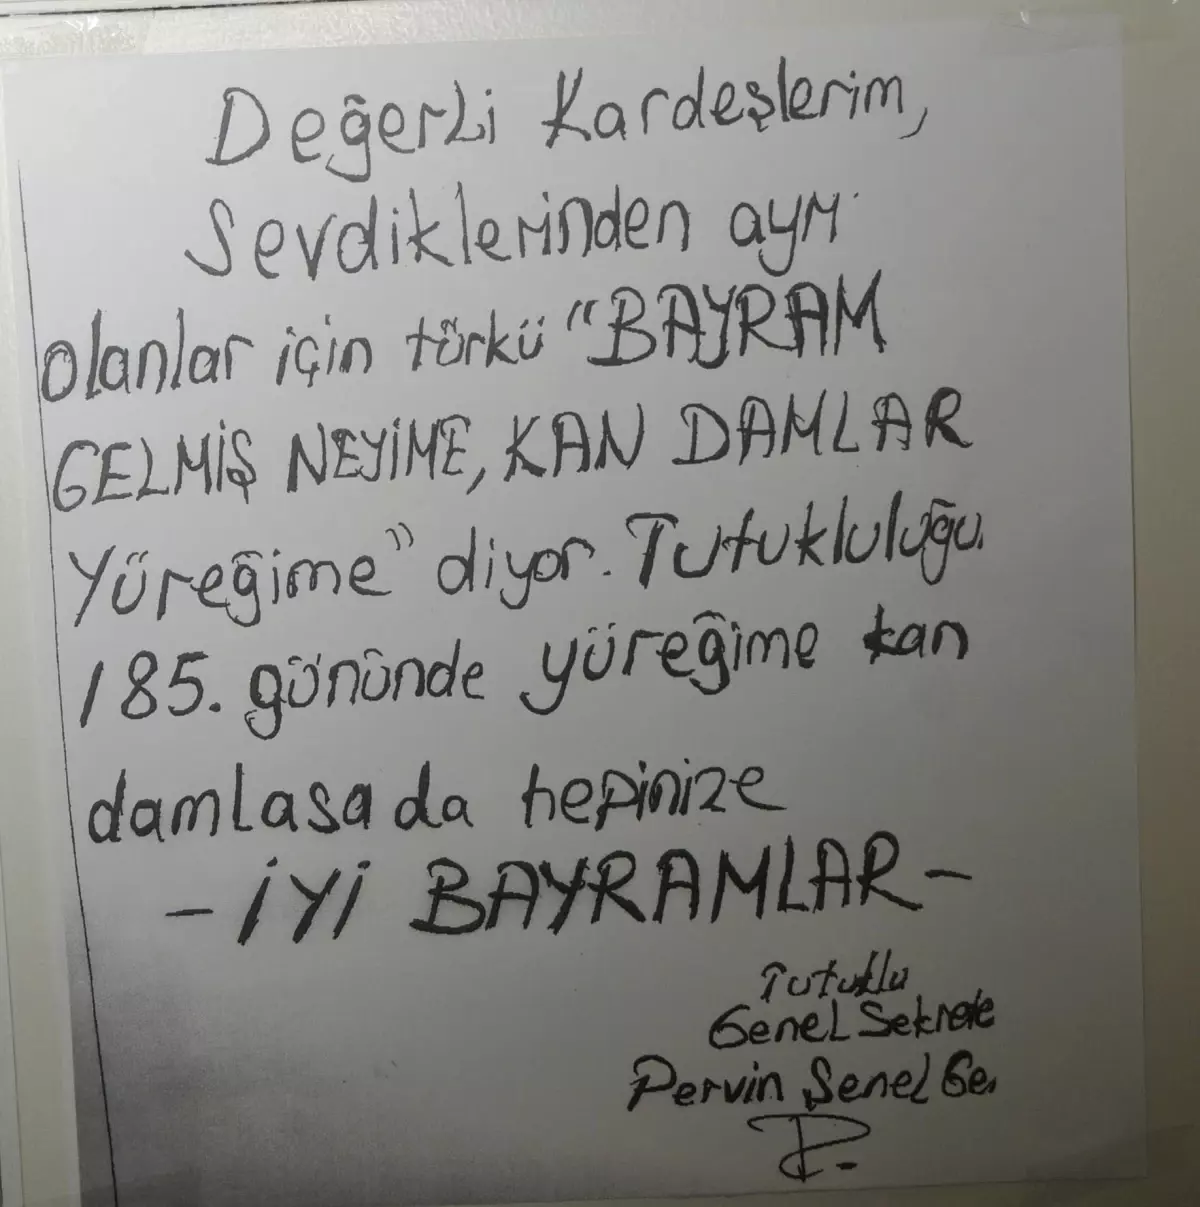 Değerli Kardeşlerim,
Sevdiklerinden ayrı
olanlar için türkü "BAYRAM
GELMİŞ NEYİME, KAN DAMLAR
Yüreğime" diyor. Tutukluluğu
185. gününde yüreğime kan
damlasa da hepinize
- İYİ BAYRAMLAR -
Tutuklu
Genel Sekrete
Pervin Şenel Ge
P.